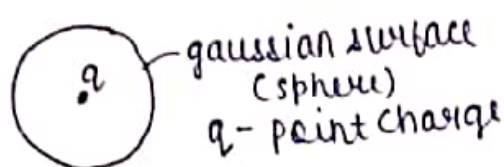 gaussian surface
(sphere)
q
q- point charge